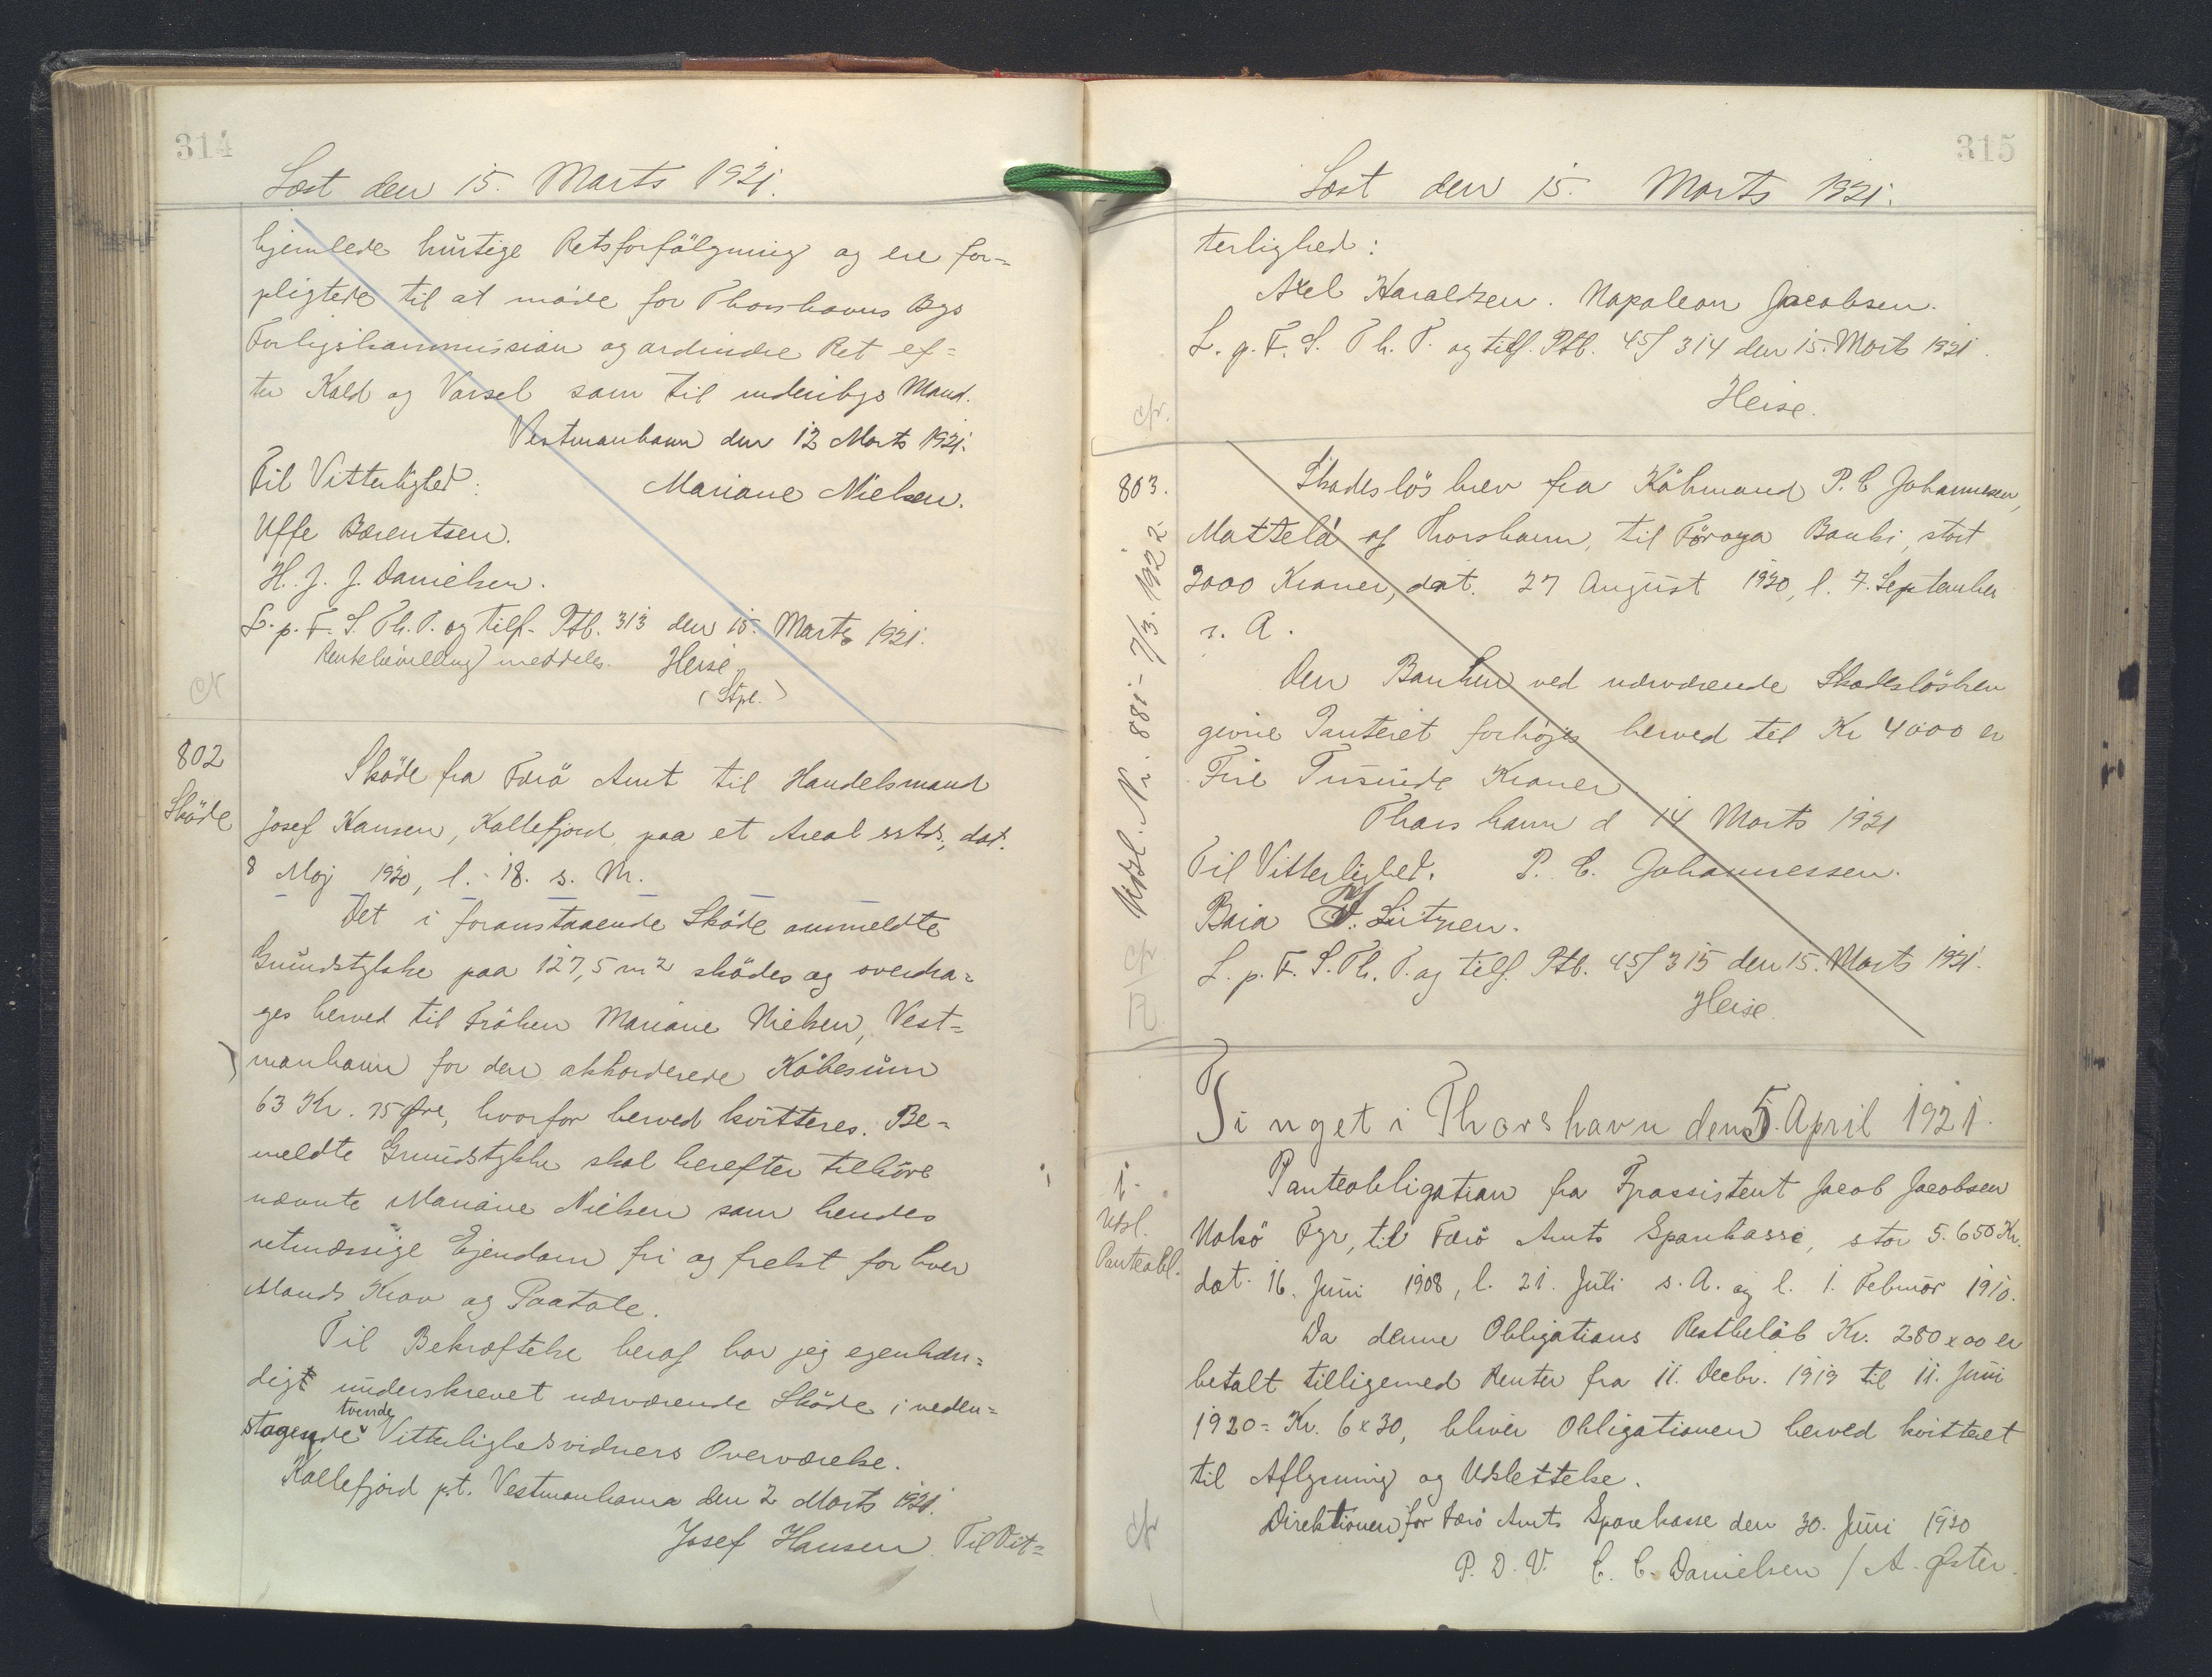 314
Læst den 15. Marts 1921.
hjemlede hurtige Retsforfølgning og ere for=
pligtede til at møde for Thorshavns Bys
Forligskommission og ordinære Ret ef=
ter Kald og Varsel som til indenbys Mand.
Vestmanhavn den 12 Marts 1921.
Til Vitterlighed: Mariane Nielsen.
Uffe Bærentsen.
H. J. J. Danielsen.
L. p. F. S. Th. P. og tilf. Ptb. 313 den 15. Marts 1921.
Rentebevilling meddeles. Heise
(Stpl.)
802
Skøde
Skøde fra Færø Amt til Handelsmand
Josef Hansen, Kollefjord, paa et Areal sstds., dat.
8 Maj 1920, l. 18. s. M.
Det i foranstaaende Skøde ommeldte
Grundstykke paa 127,5 m² skødes og overdra=
ges herved til Frøken Mariane Nielsen, Vest=
manhavn for den akkorderede Købesum
63 Kr. 75 Øre, hvorfor herved kvitteres. Be=
meldte Grundstykke skal herefter tilhøre
nævnte Mariane Nielsen som hendes
retmæssige Ejendom fri og frelst for hver
Mands Krav og Paatale.
Til Bekræftelse heraf har jeg egenhæn=
digt underskrevet nærværende Skøde i neden=
stagende tvende Vitterlighedsvidners Overværelse.
Kollefjord p.t. Vestmanhavn den 2 Marts 1921.
Josef Hansen. Til Vit=
315
Læst den 15. Marts 1921.
terlighed:
Axel Haraldsen. Napoleon Jacobsen.
L. p. F. S. Th. P. og tilf. Ptb. 45/314 den 15. Marts 1921.
Heise.
cfr.
803.
Udsl. Nr. 881 - 7/3. 1922
Skadesløsbrev fra Købmand P. C Johannesen,
Mattelá af Thorshavn, til Føroya Banki, stort
2000 Kroner, dat. 27 August 1920, l. 7. September
s. A.
Den Banken ved nærværende Skadesløsbrev
givne Panteret forhøjes herved til Kr 4000 er
Fire Tusinde Kroner
Thorshavn d 14 Marts 1921
Til Vitterlighed. P. C. Johannessen.
Baia Lützen.
L. p. F. S. Th. P. og tilf. Ptb. 45/315 den 15. Marts 1921.
Heise.
cfr.
Tinget i Thorshavn den 5. April 1921.
1.
Udsl.
Panteobl.
Panteobligation fra Fyrassistent Jacob Jacobsen
Nolsø Fyr, til Færø Amts Sparekasse, stor 5.650 Kr.
dat. 16. Juni 1908, l. 21. Juli s. A. og l. 1. Februar 1910.
Da denne Obligations Restbeløb Kr. 280 x 00 er
betalt tilligemed Renter fra 11. Decbr. 1919 til 11. Juni
1920 = Kr. 6 x 30, bliver Obligationen herved kvitteret
til Aflysning og Udslettelse.
Direktionen for Færø Amts Sparekasse den 30. Juni 1920
P. D. V. C. C. Danielsen / A. Øster.
cfr